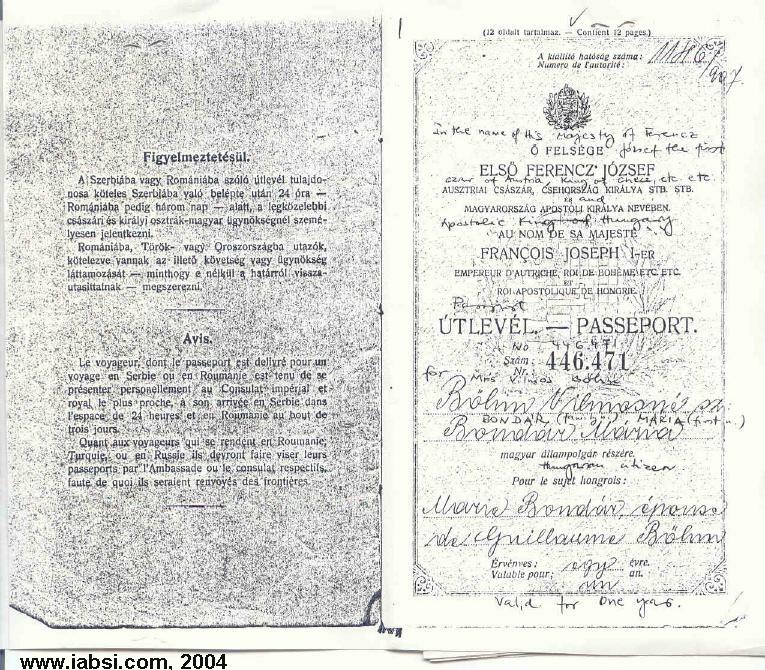 Figyelmeztetésül.
A Szerbiába vagy Romániába szóló útlevél tulajdo-
nosa köteles Szerbiába való belépte után 24 óra —
Romániába pedig három nap — alatt, a legközelebbi
császári és királyi osztrák-magyar ügynökségnél szemé-
lyesen jelentkezni.
Romániába, Török- vagy Oroszországba utazók,
kötelezve vannak az illető követség vagy ügynökség
láttamozását — minthogy e nélkül a határról vissza-
utasittatnak — megszerezni.
Avis.
Le voyageur, dont le passeport est delivré pour un
voyage en Serbie ou en Roumanie est tenu de se
présenter personellement au Consulat impérial et
royal le plus proche, à son arrivée en Serbie dans
l'espace de 24 heures et en Roumanie au bout de
trois jours.
Quant aux voyageurs qui se rendent en Roumanie,
Turquie, ou en Russie ils devront faire viser leurs
passeports par l'Ambassade ou le consulat respectifs,
faute de quoi ils seraient renvoyés des frontières.
www.iabsi.com, 2004
(12 oldalt tartalmaz. — Contient 12 pages.)
A kiállító hatóság száma:
Numero de l'autorité:
907
In the name of His Majesty of Ferencz
Ő FELSÉGE József the first
ELSŐ FERENCZ JÓZSEF
czar of Austria King of etc etc
AUSZTRIAI CSÁSZÁR, CSEHORSZÁG KIRÁLYA STB. STB.
és and
MAGYARORSZÁG APOSTOLI KIRÁLYA NEVÉBEN.
Apostolic King of Hungary
AU NOM DE SA MAJESTÉ
FRANÇOIS JOSEPH I-ER
EMPEREUR D'AUTRICHE, ROI DE BOHÈME ETC. ETC.
ET
ROI APOSTOLIQUE DE HONGRIE.
Passport
ÚTLEVÉL. — PASSEPORT.
No 446.471
Szám:
Nr. 446.471
for Mrs Vilmos Böhm
Böhm Vilmosné sz.
BONDÁR MÁRIA
Bondár Mária
magyar állampolgár részére.
Hungarian citizen
Pour le sujet hongrois:
Marie Bondár, épouse
de Guillaume Böhm
Érvényes: egy évre.
Valable pour: un an.
Valid for One year.